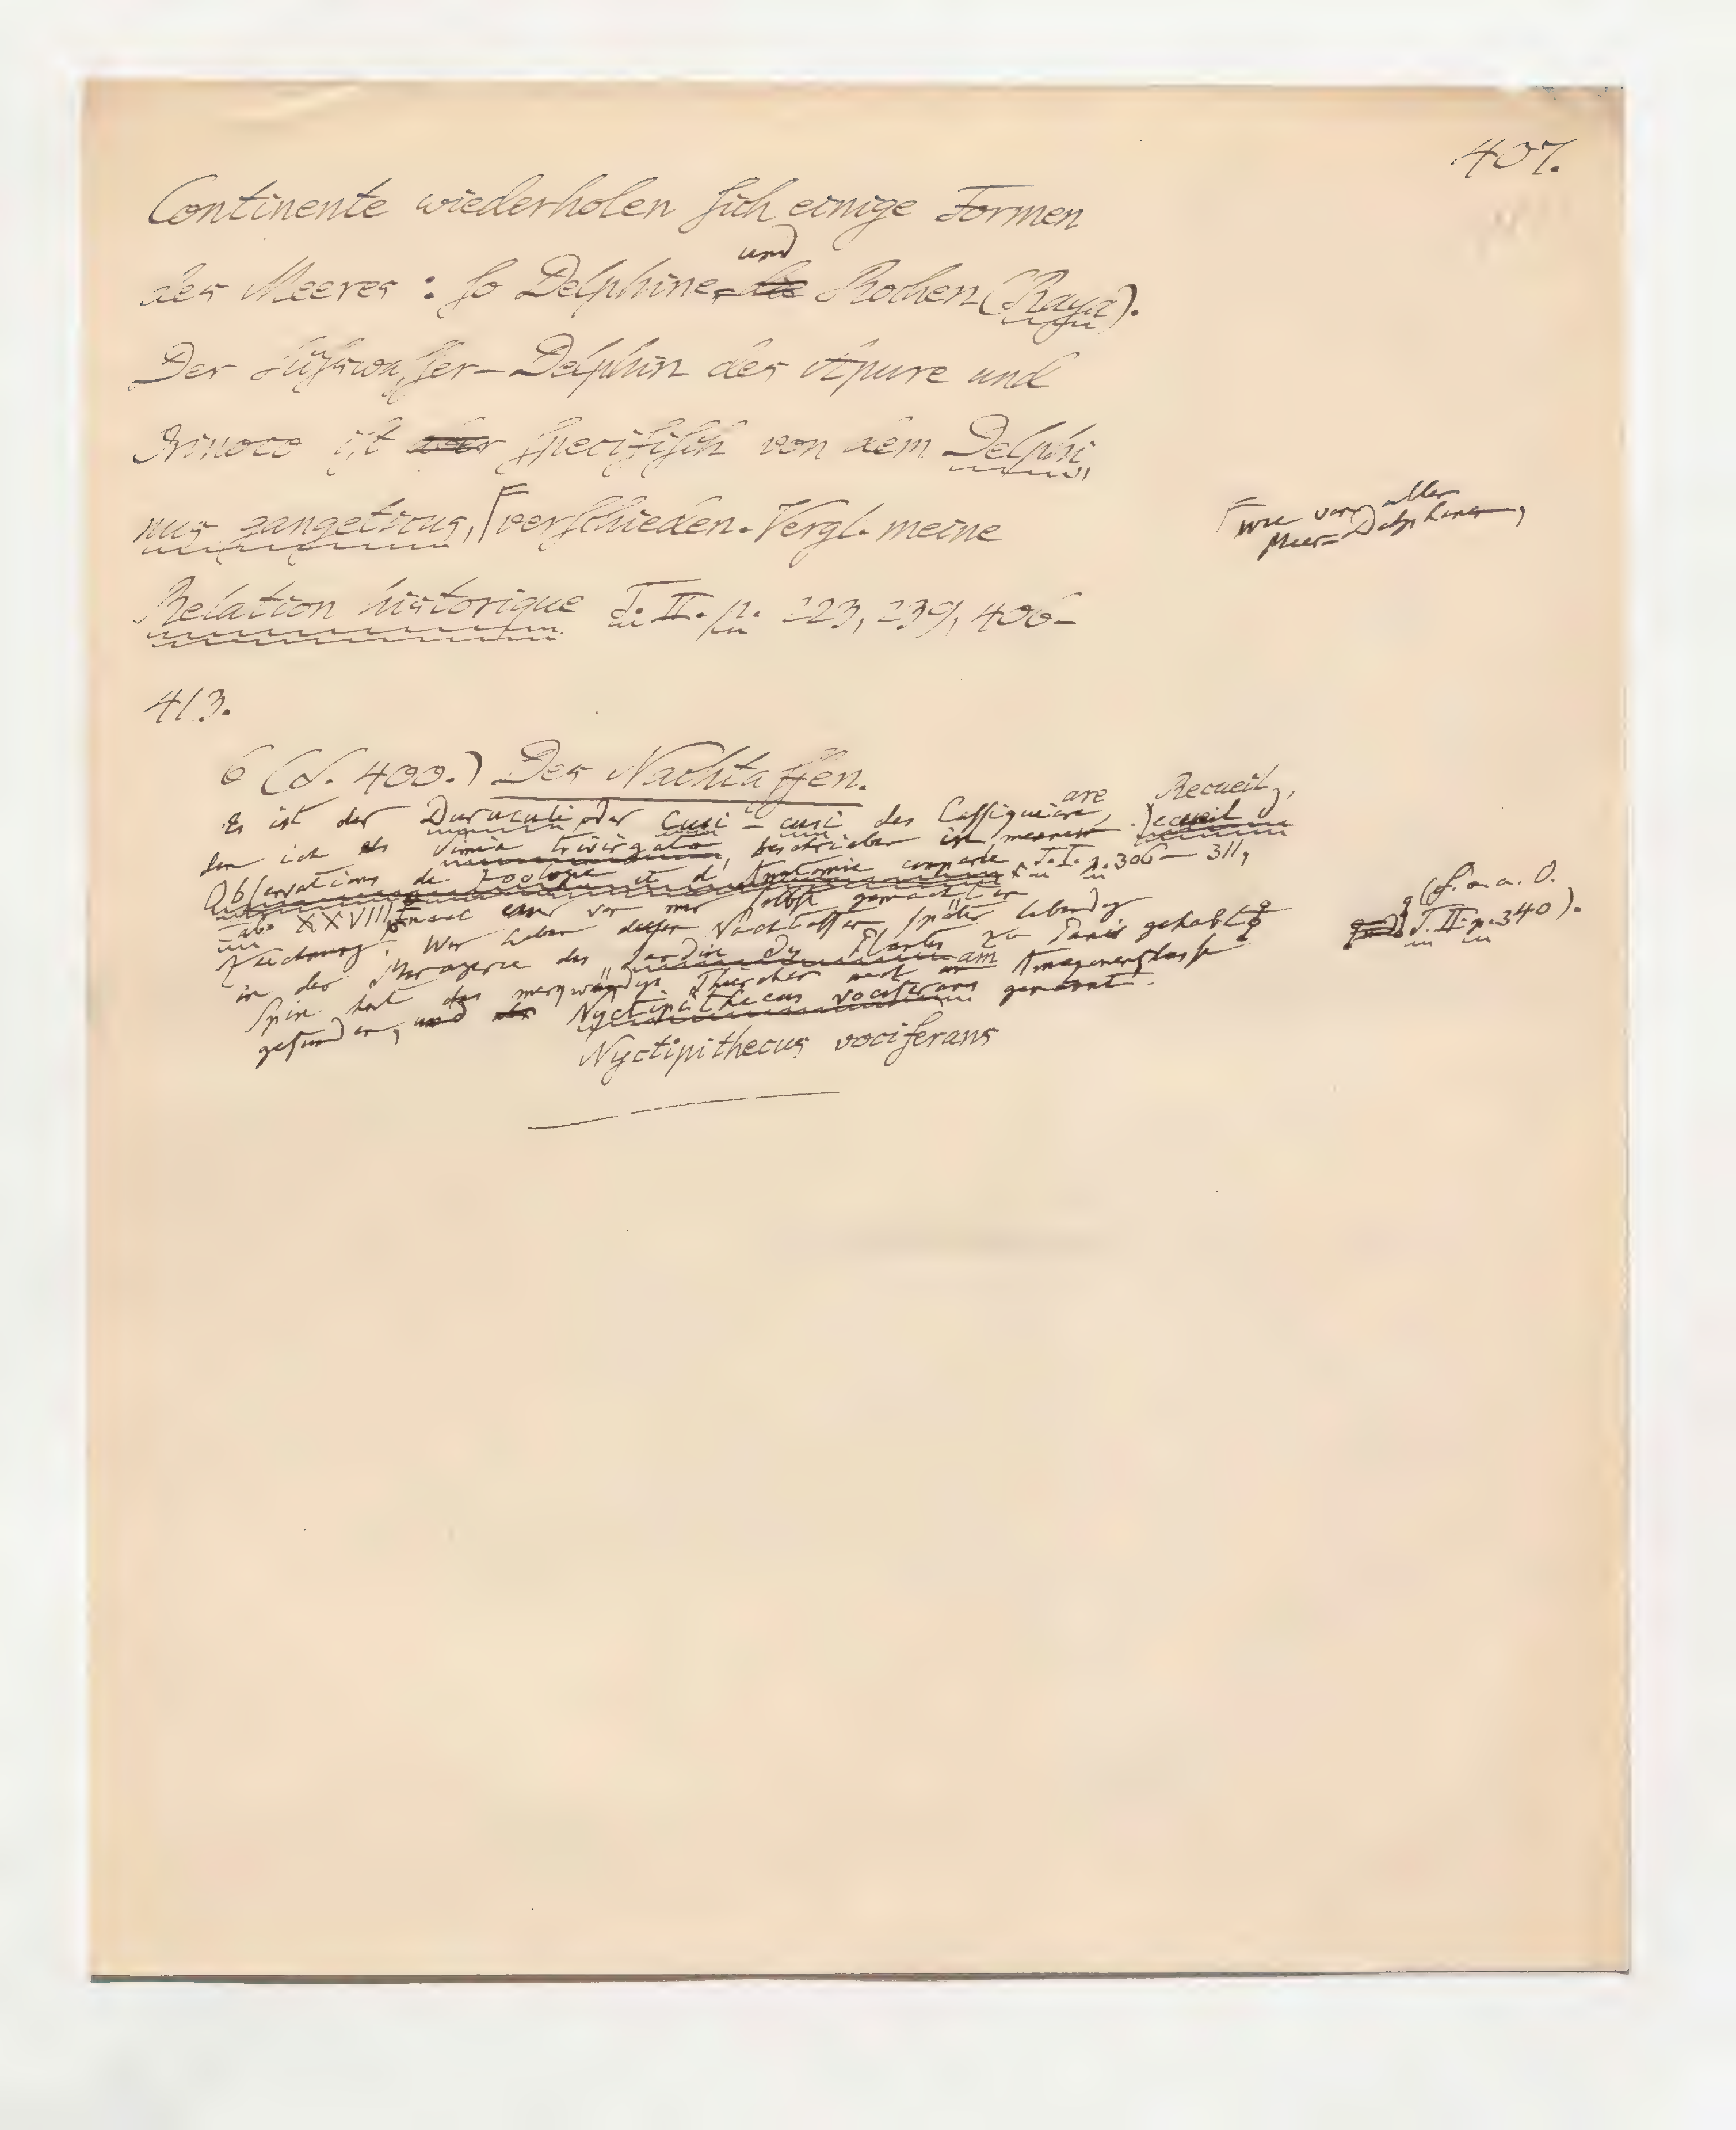 407.
Continente wiederholen sich einige Formen
des Meeres: so Delphine und Rochen (Raya).
Der Süßwasser-Delphin des Apure und
Orinoco ist aber specifisch von dem Delphi
nus gangeticus, verschieden. Vergl. meine
wie von allen
Meer-Delphinen,
Relation historique T. II. p. 223, 239, 406-
413.
6 (S. 400.) Des Nachtaffen.
Es ist der Duruculi oder Cusi-cusi des Cassiquiare,
are Recueil,
den ich als Simia trivirgata beschrieben in meinem Recueil
Observations de Zoologie et d'Anatomie comparée T. I. p. 306-311,
tab. XXVIII, nach einer von mir selbst gemachten
Zeichnung. Wir haben diesen Nachtaffen später lebendig
in der Menagerie des Jardin des Plantes zu Paris gehabt
(S. a. a. O.
T. II. p. 340).
Spix hat das merkwürdige Thierchen auch am Amazonenflusse
gefunden, und Nyctipithecus vociferans genannt.
Nyctipithecus vociferans